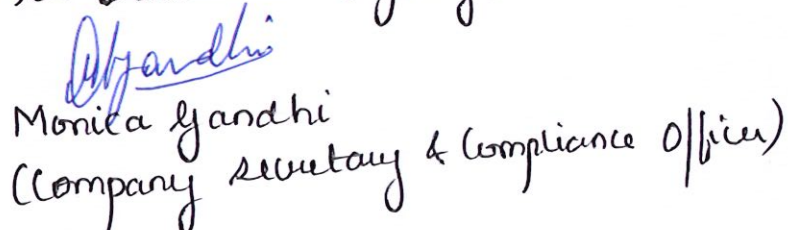 Monica Gandhi
(Company secretary & Compliance Officer)